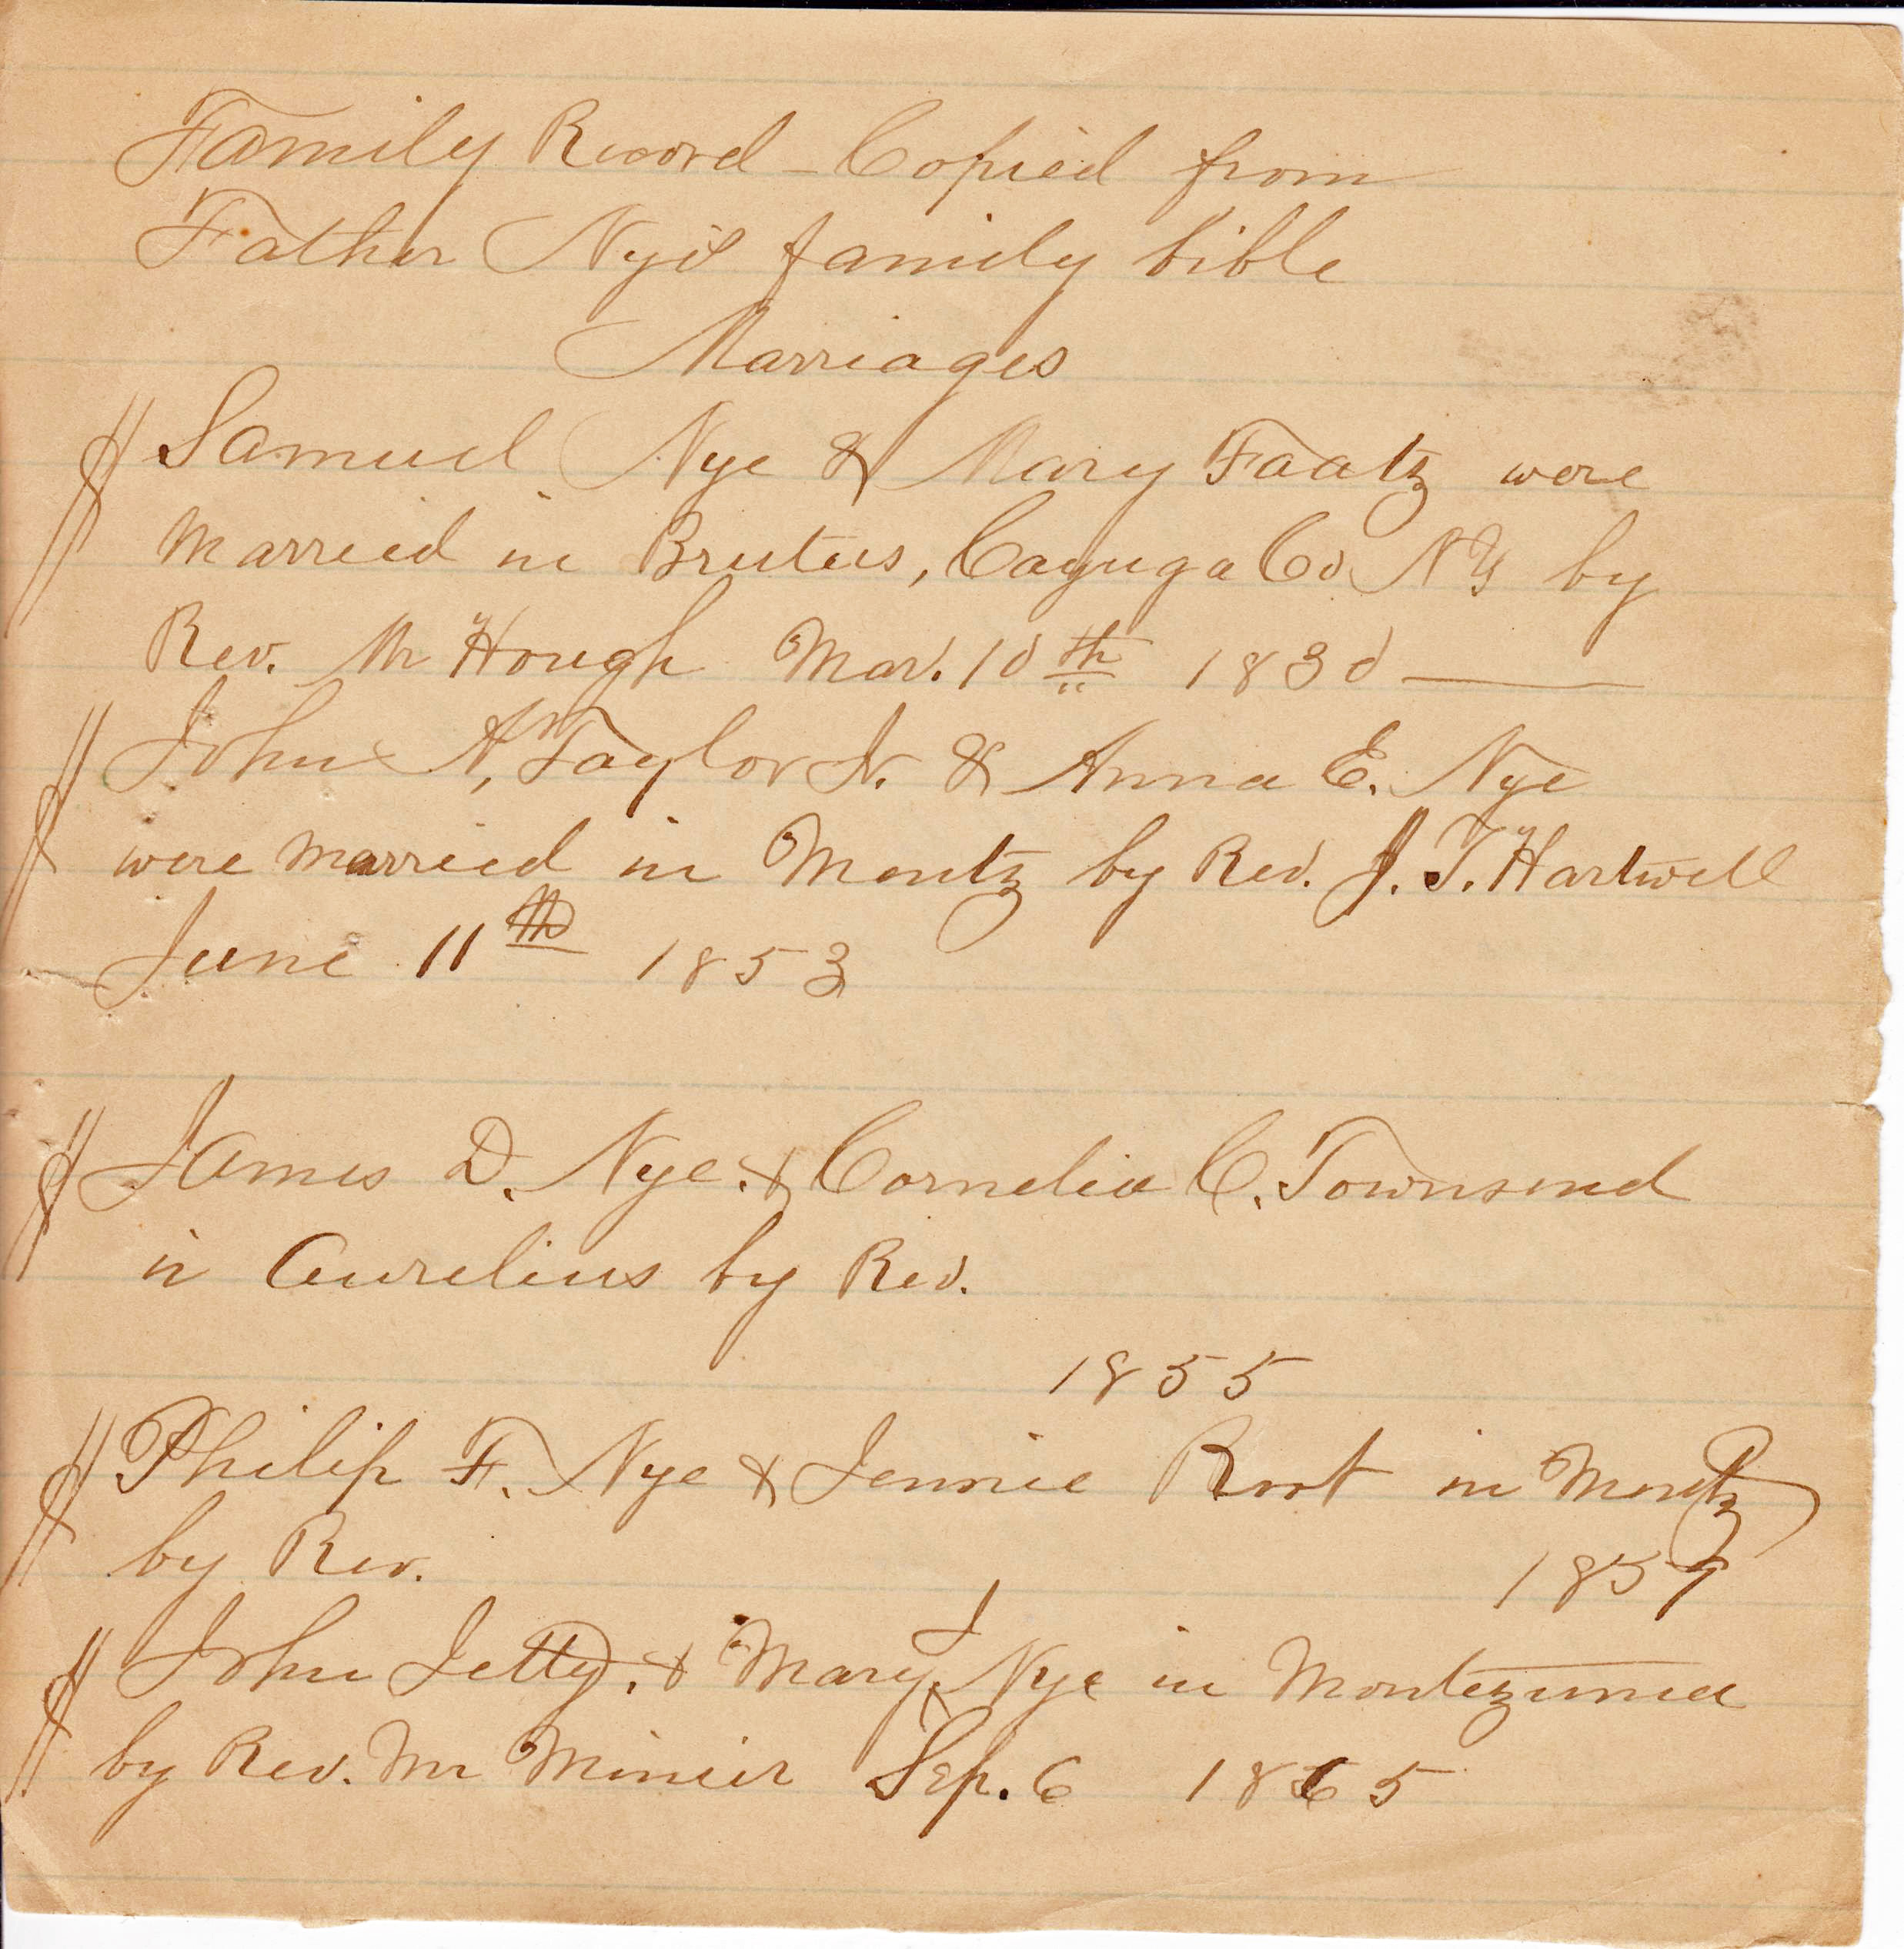 Family Record - Copied from
Father Nye's family bible
Marriages
Samuel Nye & Mary Faatz were
married in Brutus, Cayuga Co N Y by
Rev. Mr Hough Mar. 10th 1830
John A. Taylor Jr. & Anna E. Nye
were married in Mentz by Rev. J. T. Hartwell
June 11th 1853
James D. Nye. & Cornelia C. Townsend
in Aurelius by Rev.
1855
Philip F. Nye & Jennie Root in Mentz
by Rev.
John Jetty. & Mary J Nye in Montezuma
by Rev. Mr Minier Sep. 6 1865